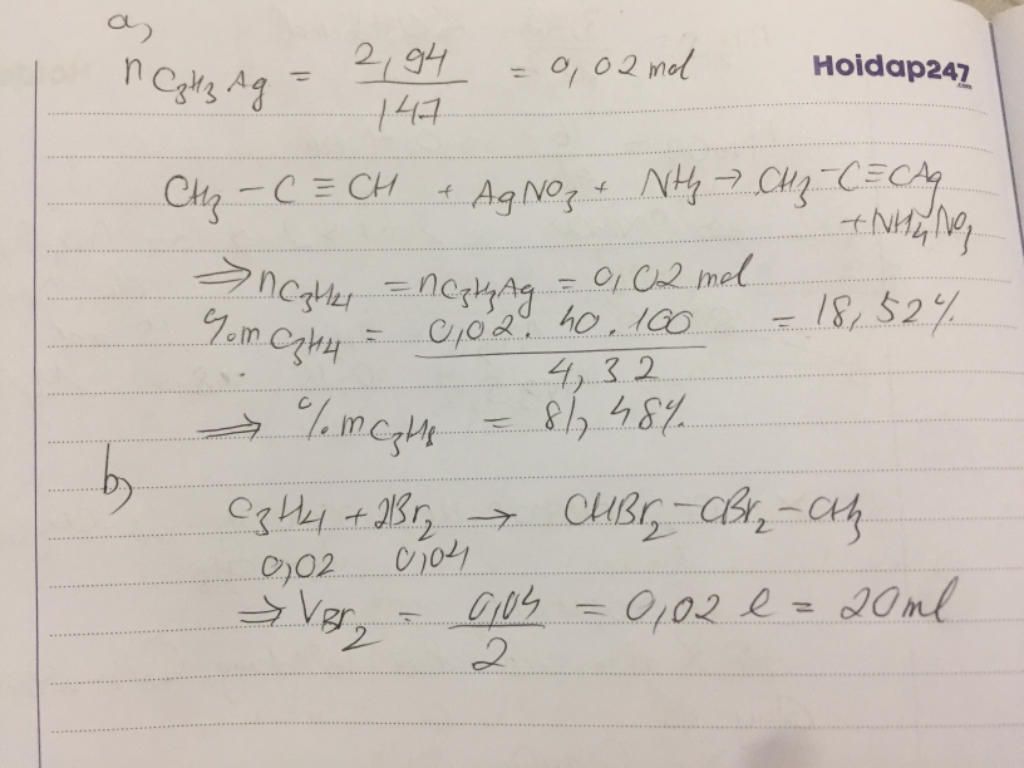 a,
nC₃H₃Ag = 2,94 / 147 = 0,02 mol
Hoidap247.com
CH₃ – C ≡ CH + AgNO₃ + NH₃ → CH₃ – C ≡ CAg
+ NH₄NO₃
⇒ nC₃H₄ = nC₃H₃Ag = 0,02 mol
%mC₃H₄ = 0,02 . 40 . 100 / 4,32 = 18,52%
⇒ %mC₃H₈ = 81,48%
b,
C₃H₄ + 2Br₂ → CHBr₂ – CBr₂ – CH₃
0,02 0,04
⇒ VBr₂ = 0,04 / 2 = 0,02 l = 20 ml